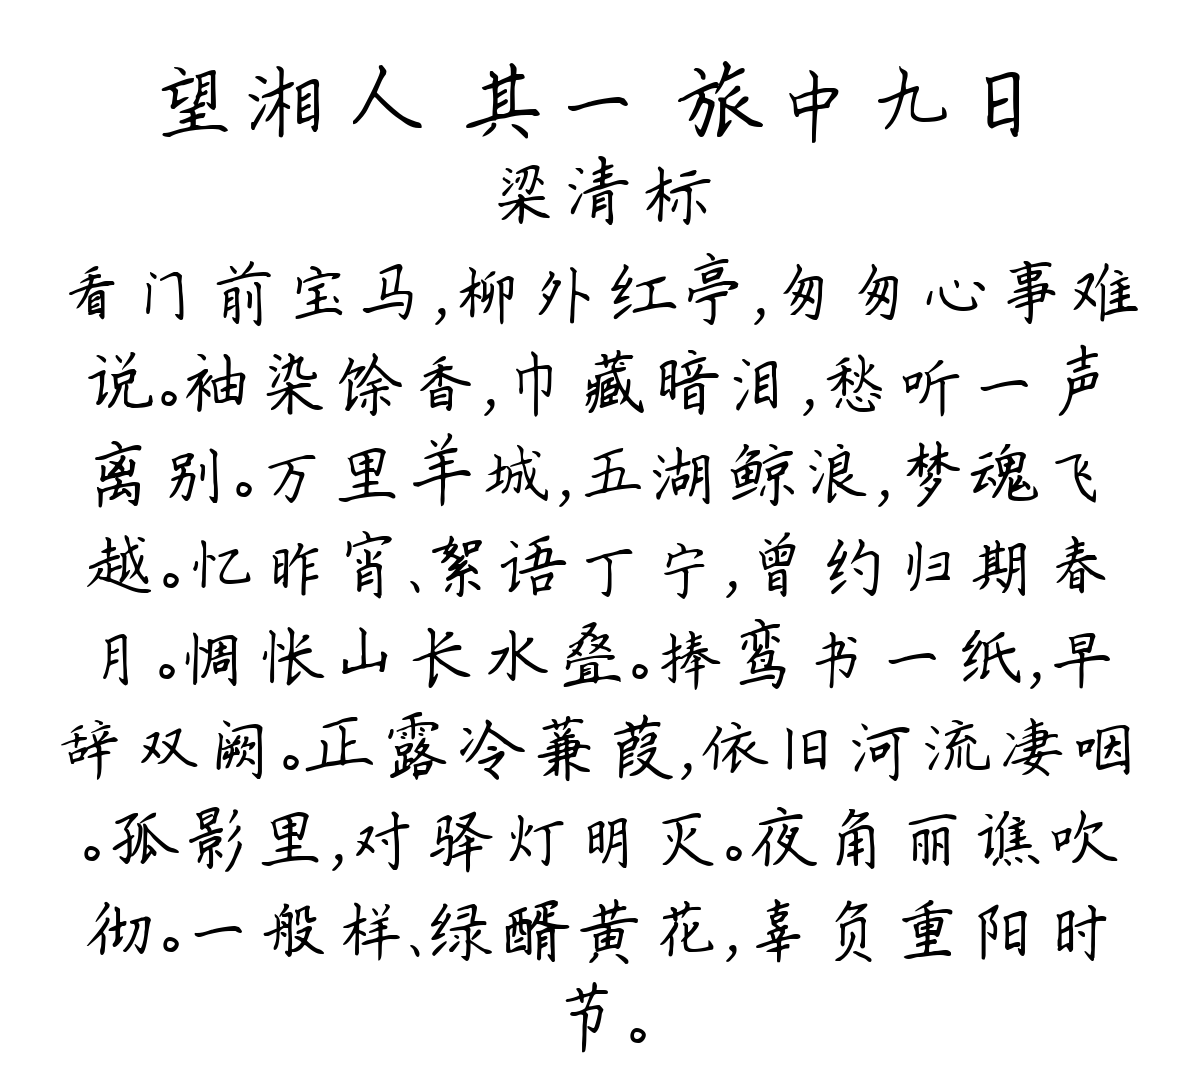 望湘人 其一 旅中九日
梁清标
看门前宝马,柳外红亭,匆匆心事难
说。袖染馀香,巾藏暗泪,愁听一声
离别。万里羊城,五湖鲸浪,梦魂飞
越。忆昨宵、絮语丁宁,曾约归期春
月。惆怅山长水叠。捧鸾书一纸,早
辞双阙。正露冷蒹葭,依旧河流凄咽
。孤影里,对驿灯明灭。夜角丽谯吹
彻。一般样、绿醑黄花,辜负重阳时
节。